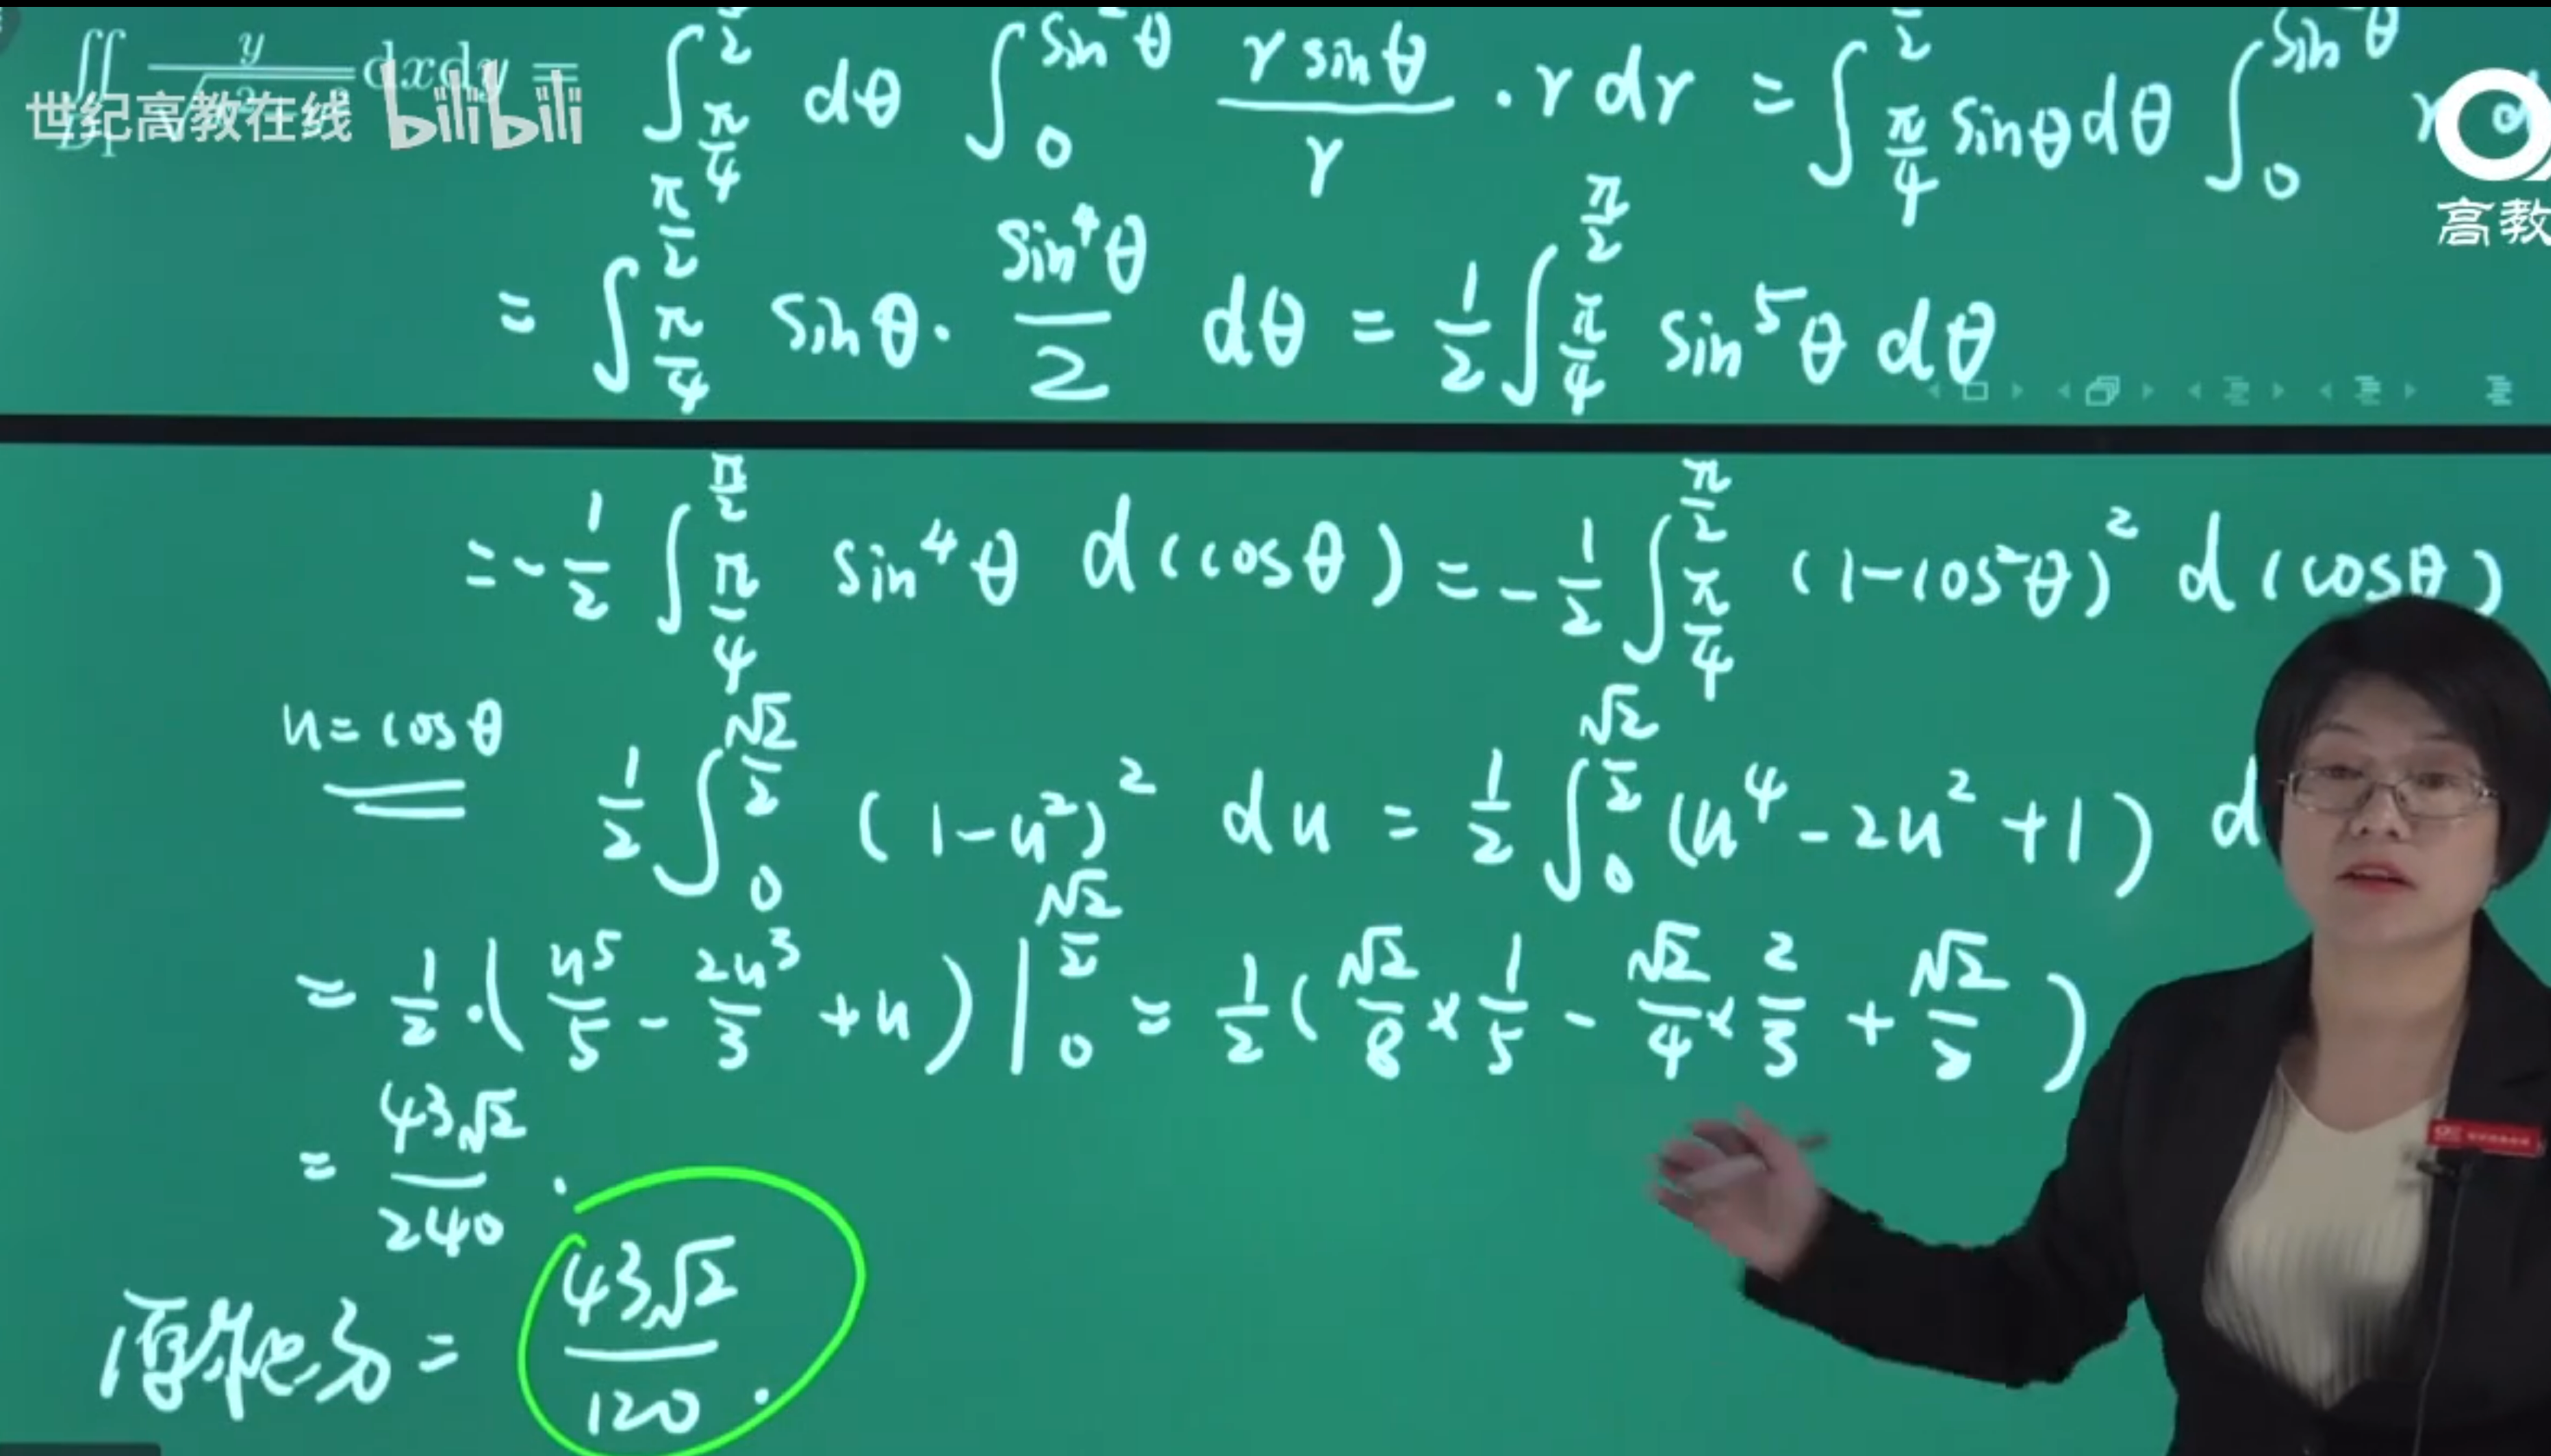 ∬_{D₁} y/√(x²+y²) dxdy = ∫_{π/4}^{π/2} dθ ∫_0^{sin²θ} (r sinθ)/r · r dr = ∫_{π/4}^{π/2} sinθ dθ ∫_0^{sin²θ} r
世纪高教在线 bilibili
高教
= ∫_{π/4}^{π/2} sinθ · (sin⁴θ)/2 dθ = 1/2 ∫_{π/4}^{π/2} sin⁵θ dθ
= -1/2 ∫_{π/4}^{π/2} sin⁴θ d(cosθ) = -1/2 ∫_{π/4}^{π/2} (1-cos²θ)² d(cosθ)
u=cosθ 1/2 ∫_0^{√2/2} (1-u²)² du = 1/2 ∫_0^{√2/2} (u⁴-2u²+1) d
= 1/2 · (u⁵/5 - 2u³/3 + u) |_0^{√2/2} = 1/2 (√2/8 × 1/5 - √2/4 × 2/3 + √2/2)
= 43√2/240 .
原积分 = 43√2/120 .